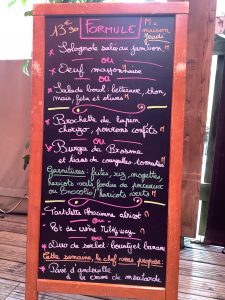 13€90 FORMULE M = maison
Jeudi
* Solognote salade au jambon M
ou
* Oeuf mayonnaise M
ou
* Salade bowl : betterave, thon,
maïs, feta et olives M
* Brochette de lapin
chorizo, poivrons confits M
ou
* Burger de Brosme
et tians de courgettes tomates M
Garnitures : frites, riz, mogettes,
haricots verts, fondue de poireaux
ou Brocolis / haricots verts M
* Tartelette abricot M
ou
* Pot de crème Milky way M
ou
* Duo de sorbet : bounty et banane
Cette semaine, le chef vous propose :
* Pavé d'andouille
à la crème de moutarde